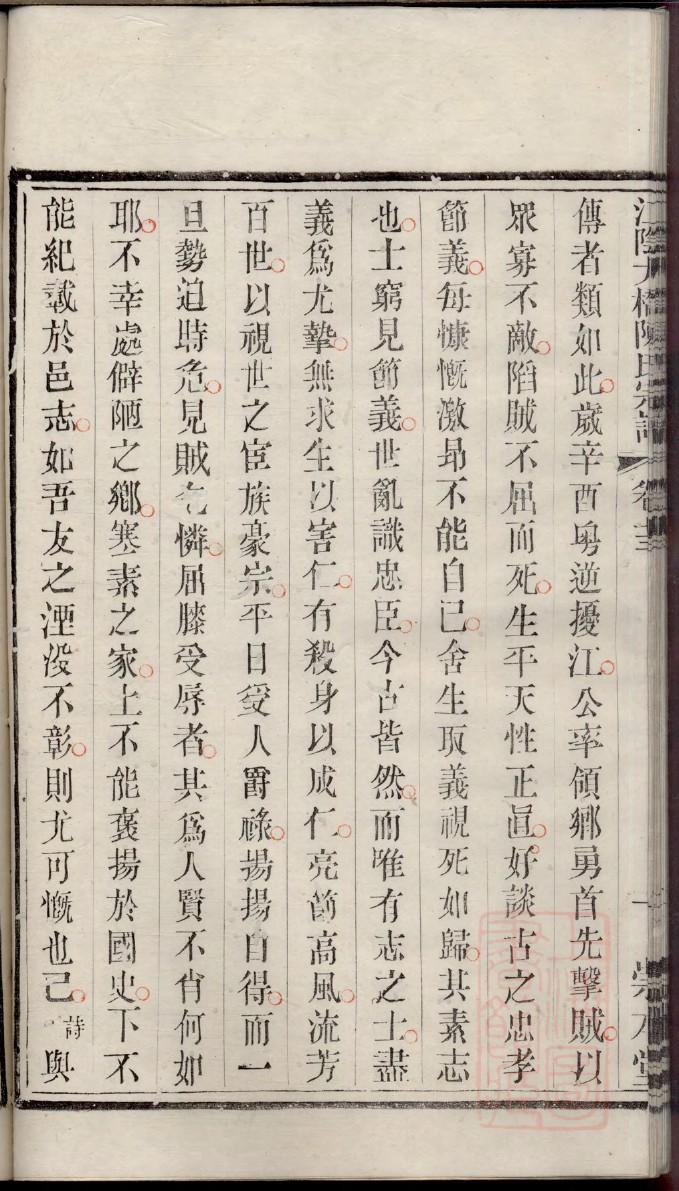 傳者類如此歲辛酉粵逆擾江公率領鄉勇首先擊賊以
眾寡不敵陷賊不屈而死生平天性正直好談古之忠孝
節義每慷慨激昂不能自已舍生取義視死如歸其素志
也士窮見節義世亂識忠臣今古皆然而唯有志之士盡
義爲尤摯無求生以害仁有殺身以成仁亮節高風流芳
百世以視世之宦族豪宗平日受人爵祿揚揚自得而一
旦勢迫時危見賊乞憐屈膝受辱者其爲人賢不肖何如
耶不幸處僻陋之鄉寒素之家上不能褒揚於國史下不
能紀載於邑志如吾友之湮沒不彰則尤可慨也已 詩與